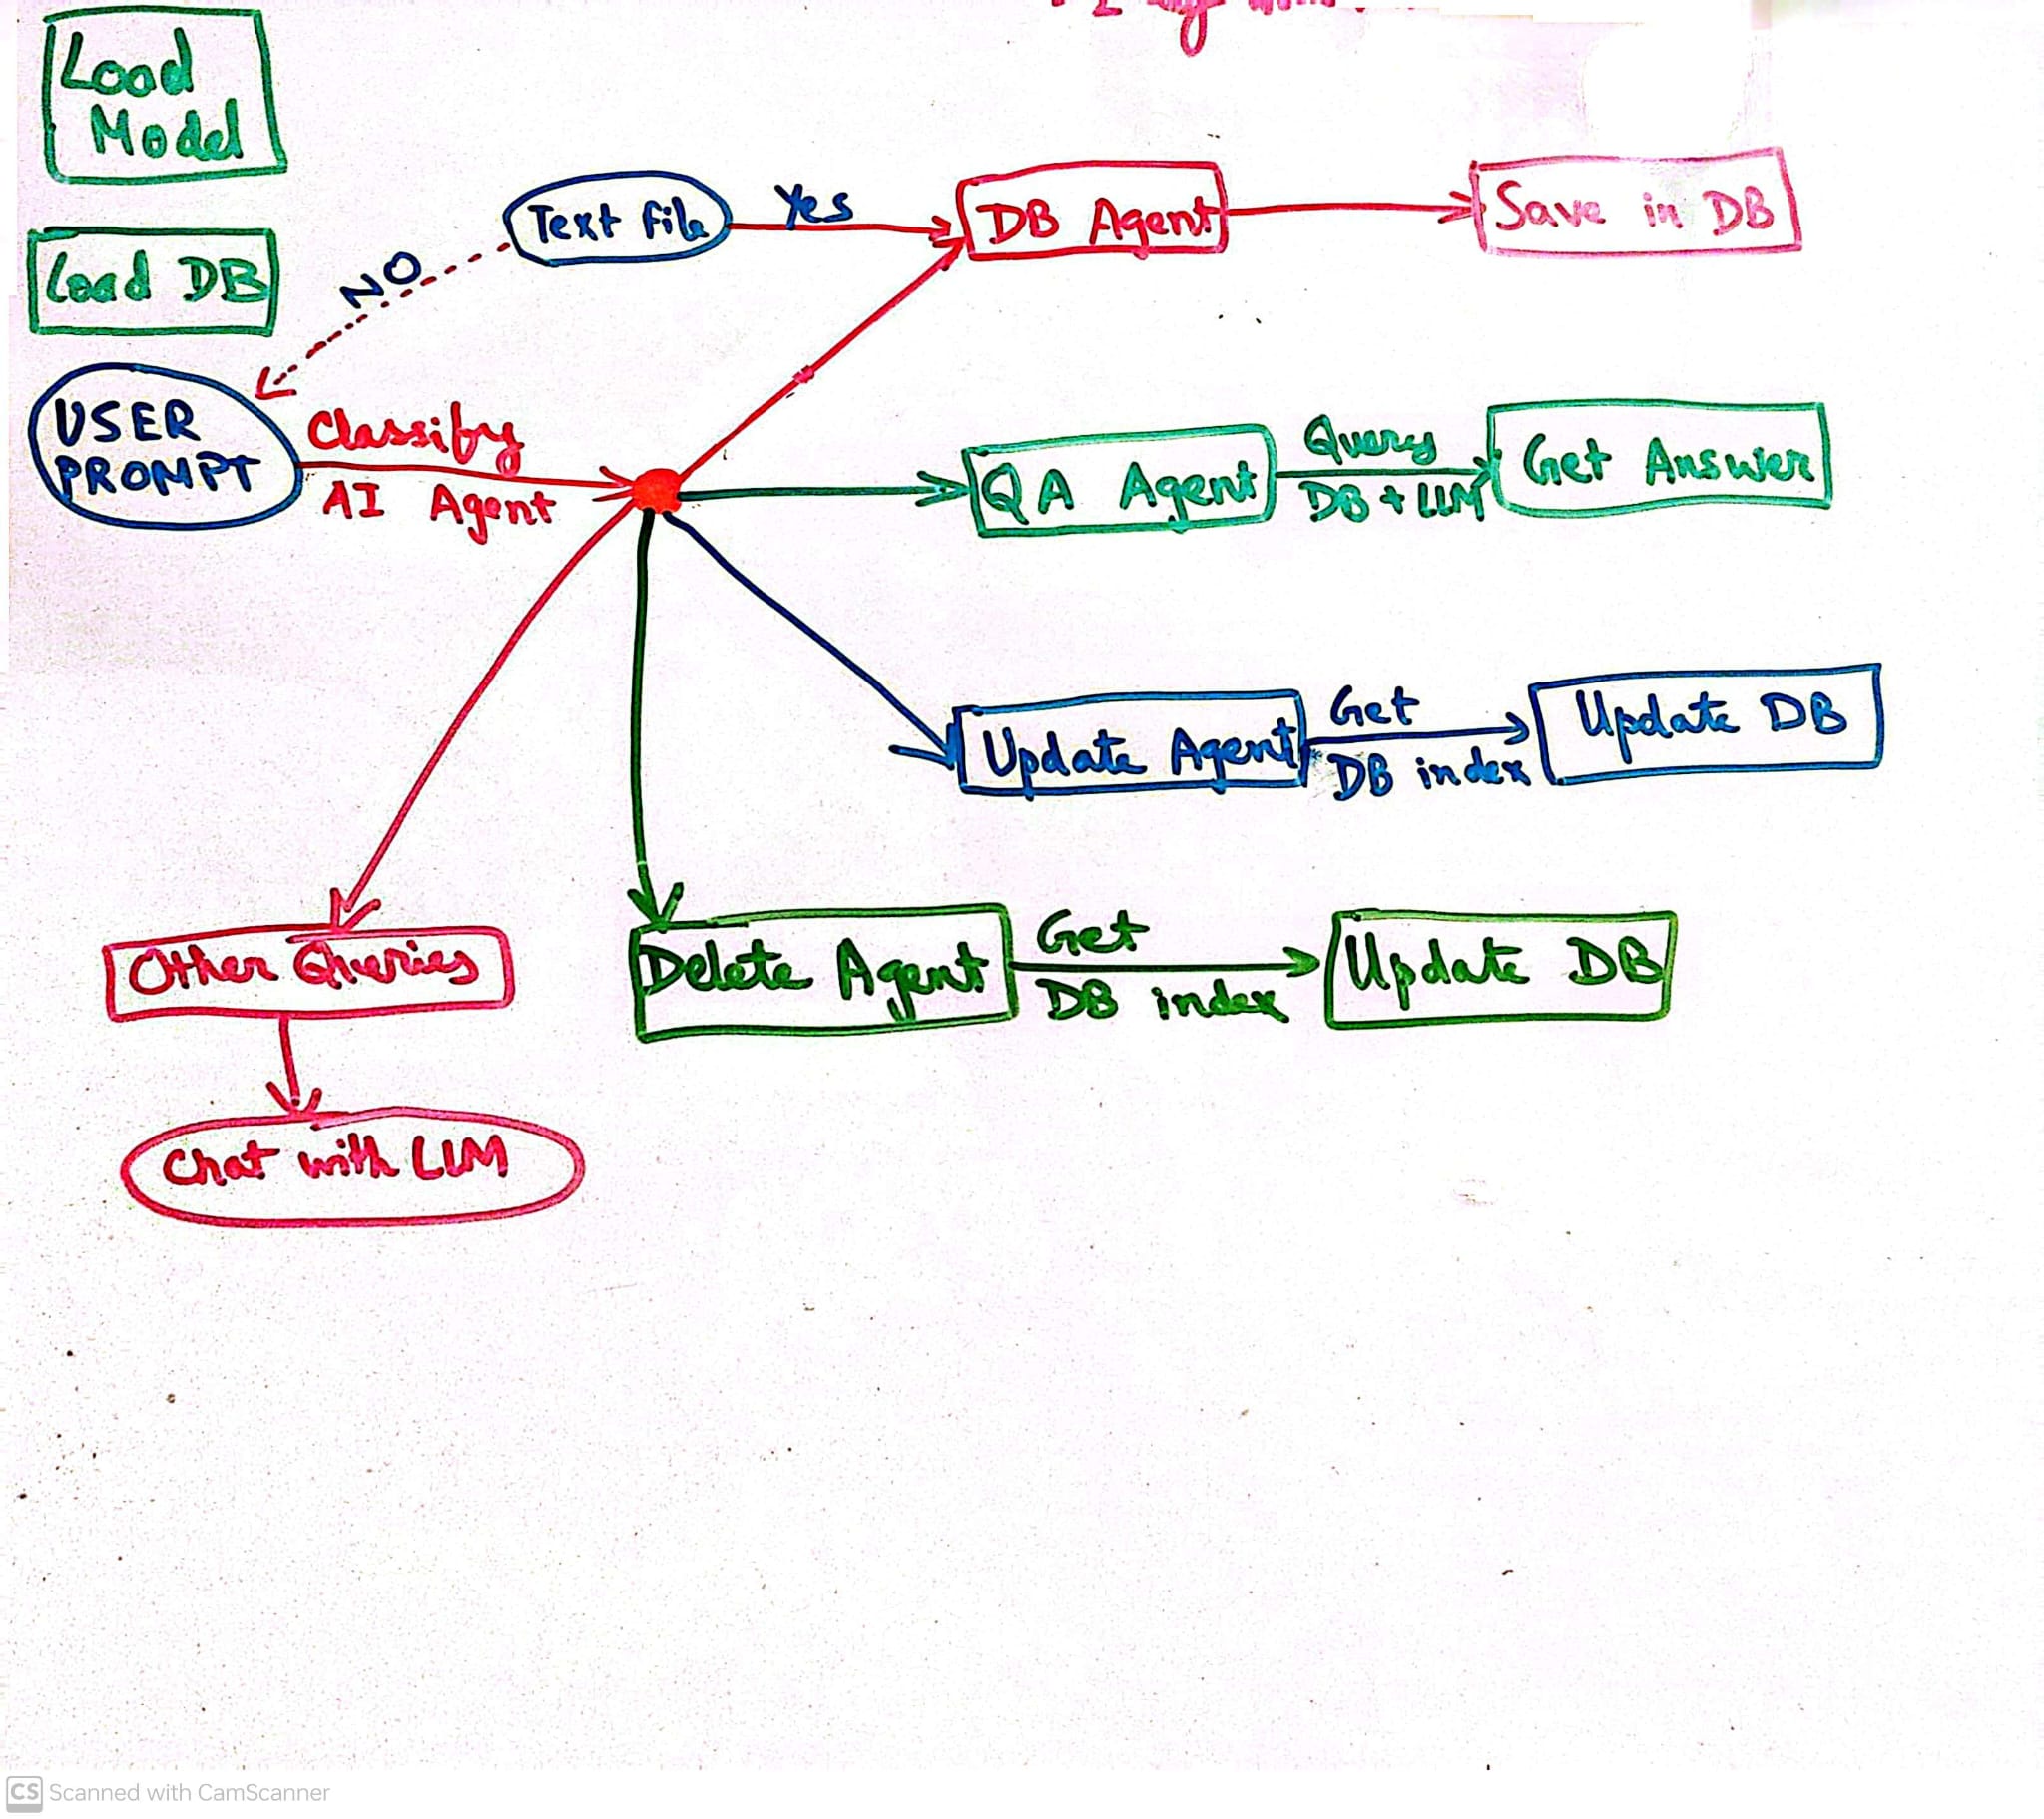 Load
Model
Load DB
Text file
Yes
DB Agent
Save in DB
NO
USER
PROMPT
Classify
AI Agent
QA Agent
Query
DB + LLM
Get Answer
Update Agent
Get
DB index
Update DB
Other Queries
Delete Agent
Get
DB index
Update DB
Chat with LLM
CS Scanned with CamScanner